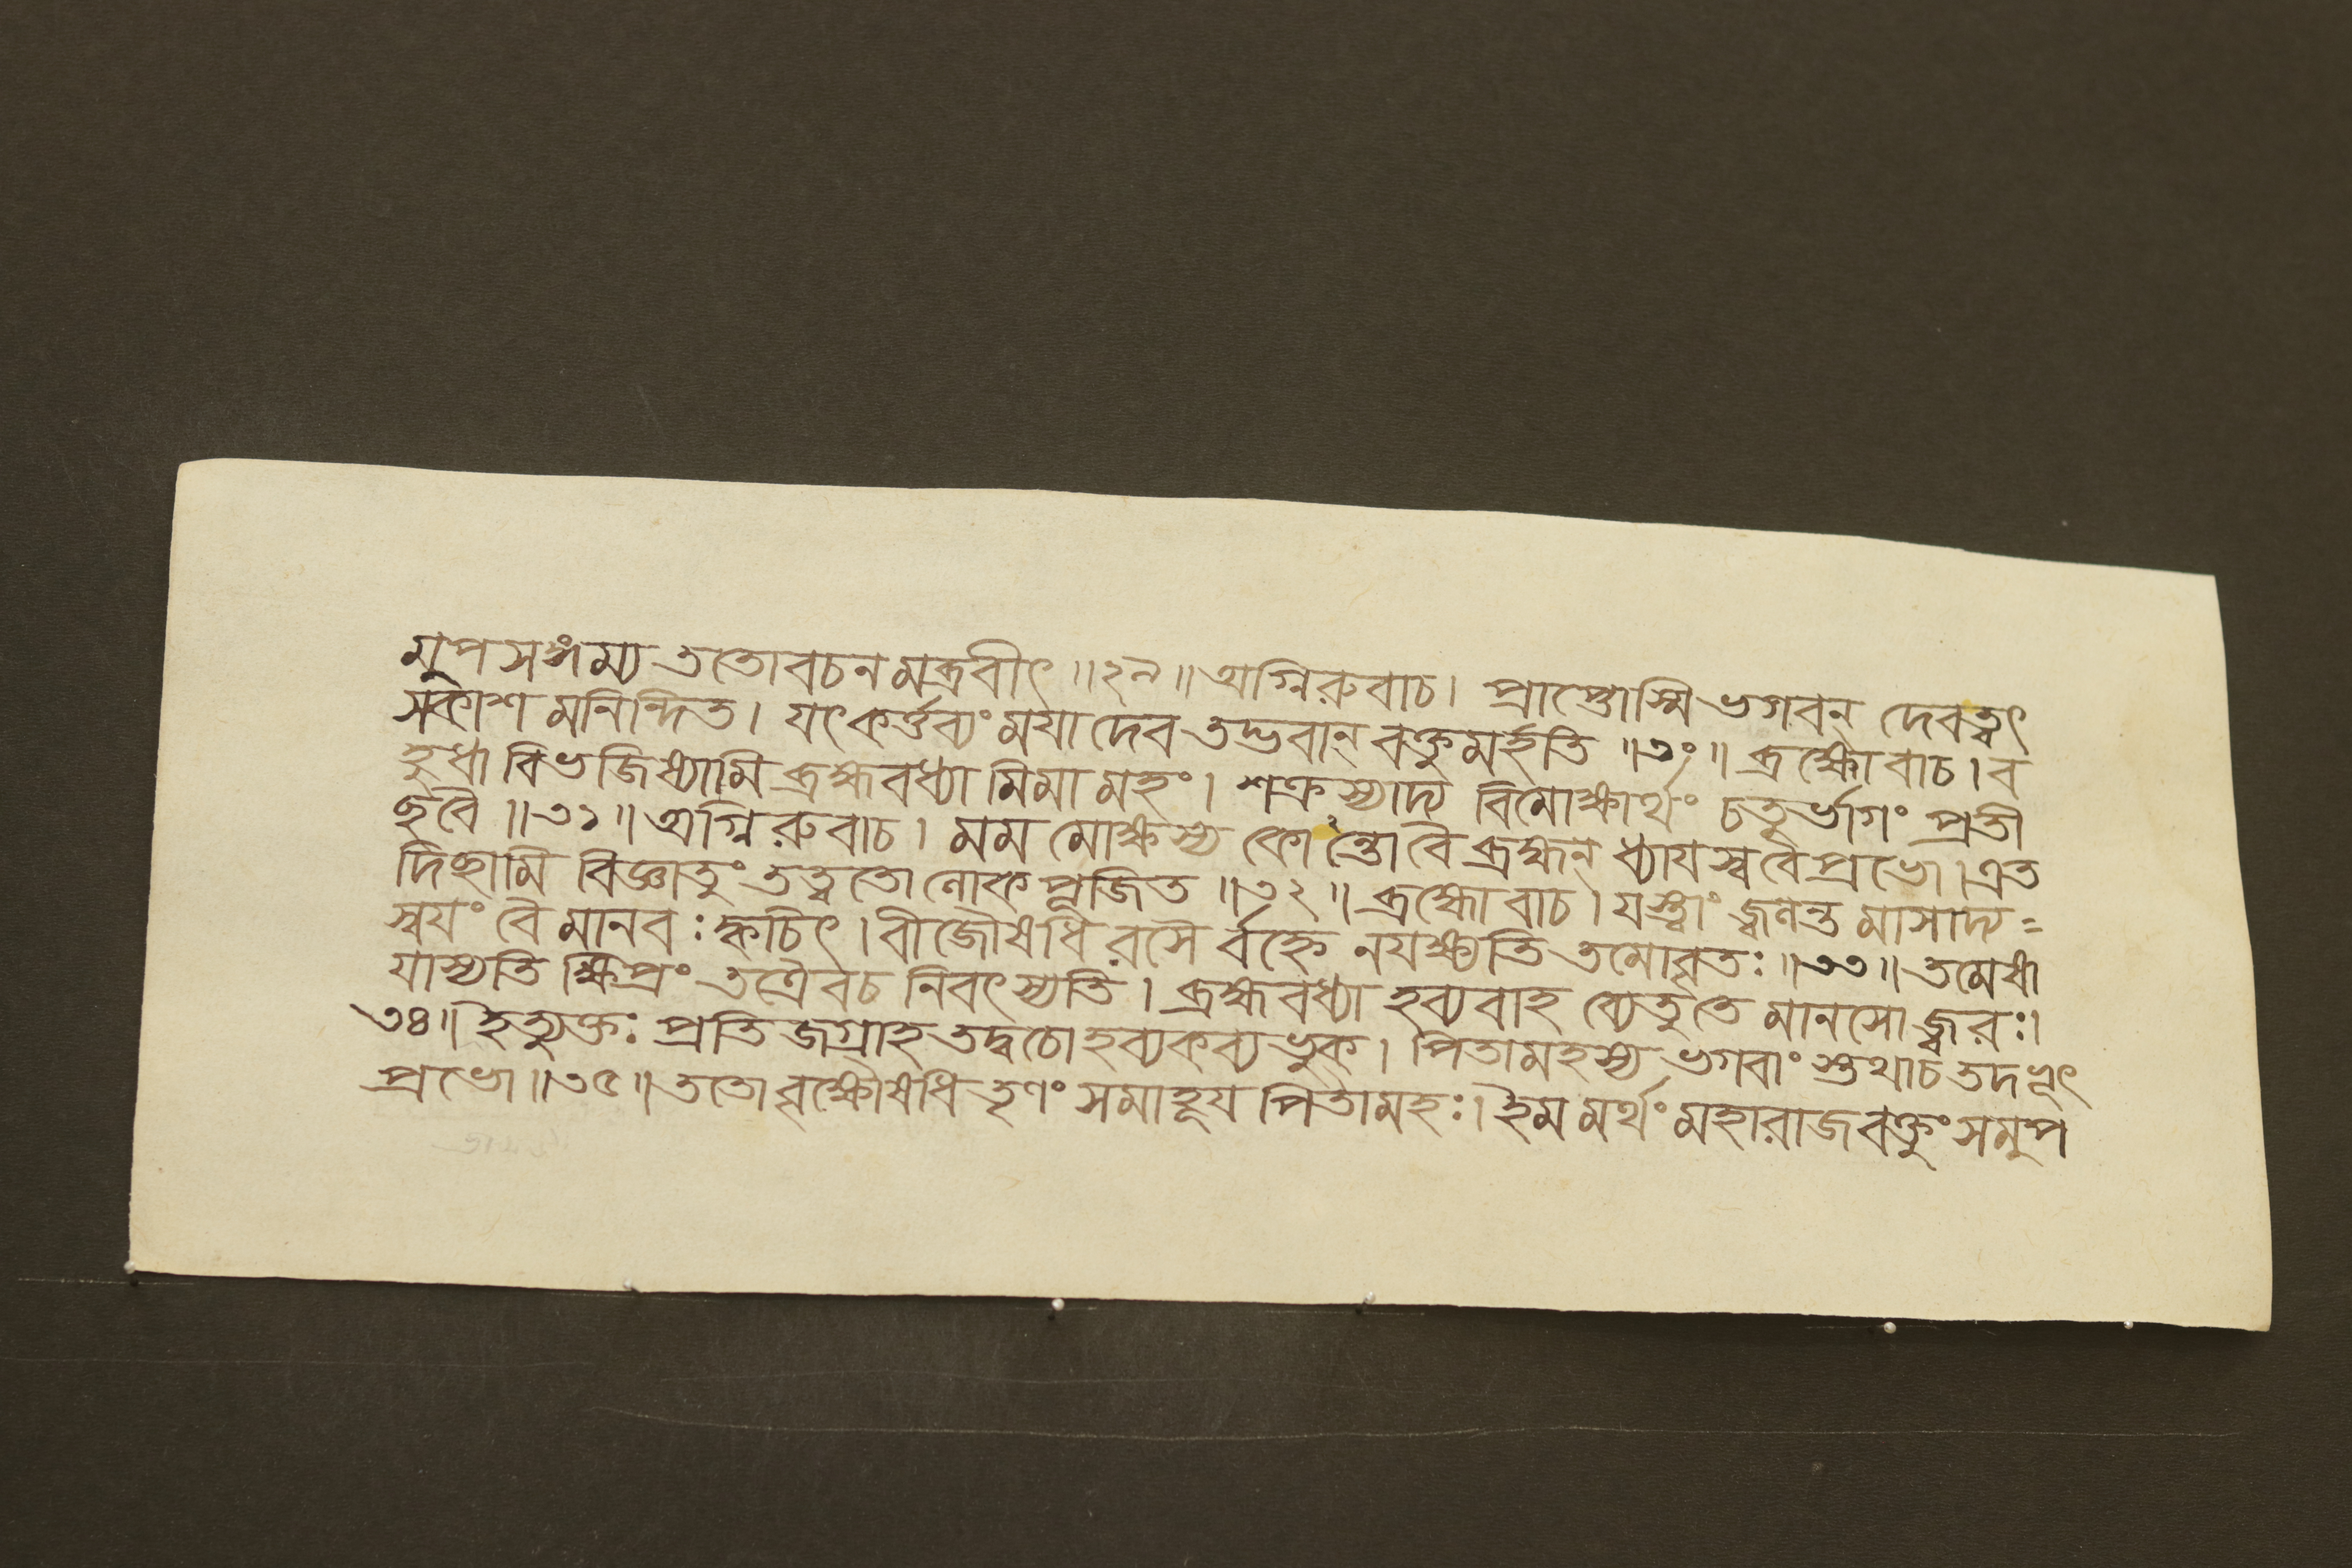 মুপসঙ্গম্য ততোবচনমব্রবীৎ ॥২৯॥ অগ্নিরুবাচ। প্রাপ্তোস্মি ভগবন্ দেবত্বৎ
সকাশ মনিন্দিত। যৎকর্ত্তব্যং ময়া দেব তদ্ভবান্ বক্তুমর্হতি ॥৩০॥ ব্রহ্মোবাচ। ব
হুধা বিভজিষ্যামি ব্রহ্মবধ্যা মিমা মহং। শক্রস্যাদ্য বিমোক্ষার্থং চতুর্ভাগং প্রতী
ছবৈ ॥৩১॥ অগ্নিরুবাচ। মম মোক্ষস্য কোন্তোবৈ ব্রহ্মন্ ধ্যাযস্ববৈপ্রভো। এত
দিছামি বিজ্ঞাতুং তত্ত্বতো লোকপূজিত ॥৩২॥ ব্রহ্মোবাচ। যস্ত্বাং জ্বলন্ত মাসাদ্য=
স্বযং বৈ মানবঃ ক্বচিৎ। বীজৌষধি রসৈ র্বহ্নে নযক্ষ্যতি তমোবৃতঃ ॥৩৩॥ তমেষা
যাস্যতি ক্ষিপ্রং তত্রৈবচ নিবৎস্যতি। ব্রহ্মবধ্যা হব্যবাহ ব্যেতুতে মানসো জ্বরঃ।
৩৪॥ ইত্যুক্তঃ প্রতিজগ্রাহ তদ্বচো হব্যকব্যভুক। পিতামহস্য ভগবাং স্তথাচ তদভূৎ
প্রভো ॥৩৫॥ ততো বৃক্ষৌষধি তৃণং সমাহূয পিতামহঃ। ইম মর্থং মহারাজ বক্তুং সমুপ